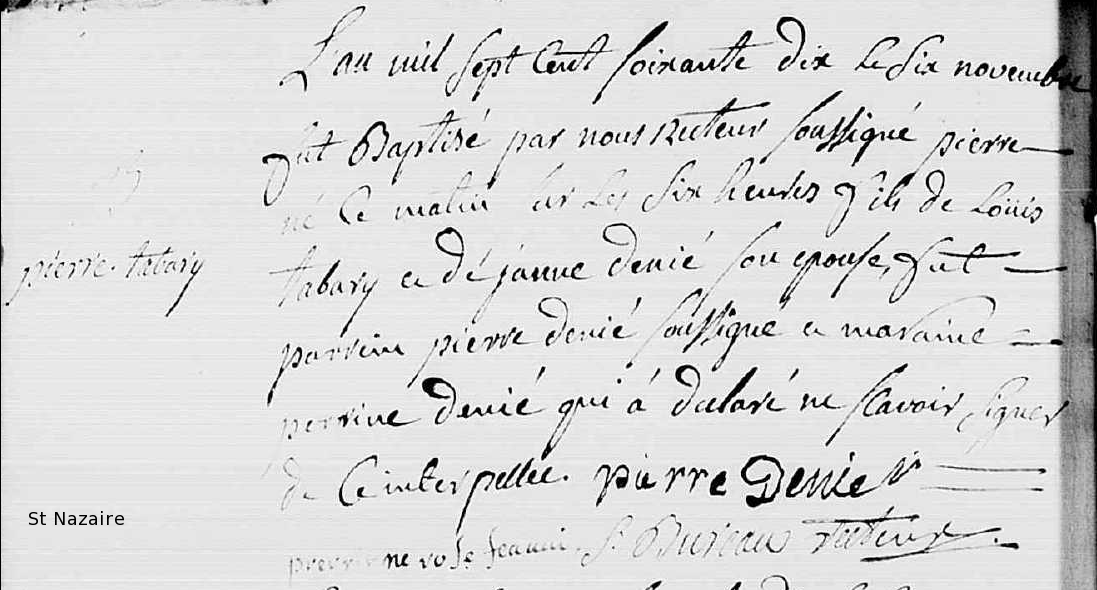 L'an mil sept Cent soixante dix le six novembre
fut Baptisé par nous Recteur soussigné pierre
né Ce matin sur les six heures fils de Louis
pierre tabary
tabary et dé janne denié son epouse, fut
parrein pierre denié soussigné et maraine
perrine denié qui á declaré ne sçavoir signer
de Ce interpellée. pierre Denie
St Nazaire
ne rose S. Bureau Recteur